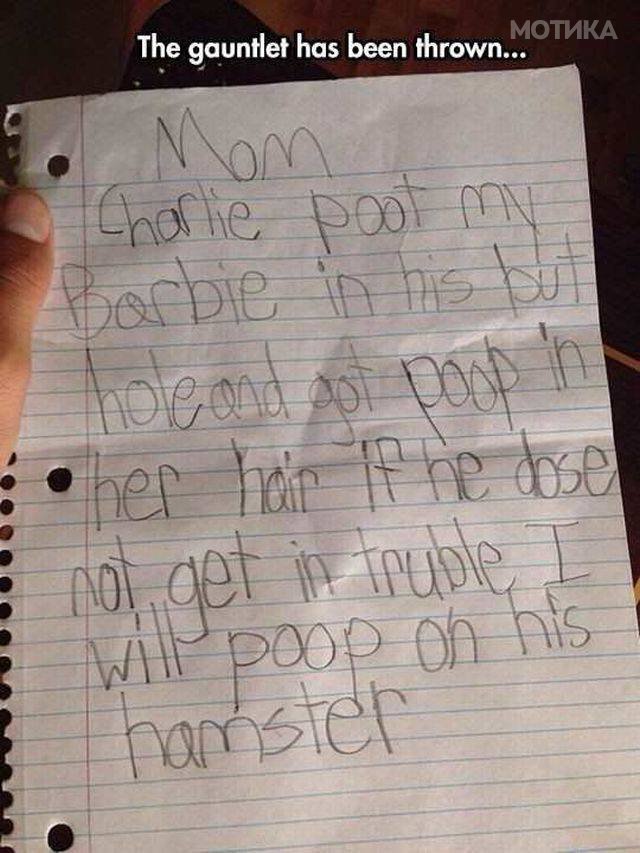 МОТИКА
The gauntlet has been thrown...
Mom
Charlie poot my
Barbie in his but
hole and got poop in
her hair if he dose
not get in truble I
will poop on his
hamster